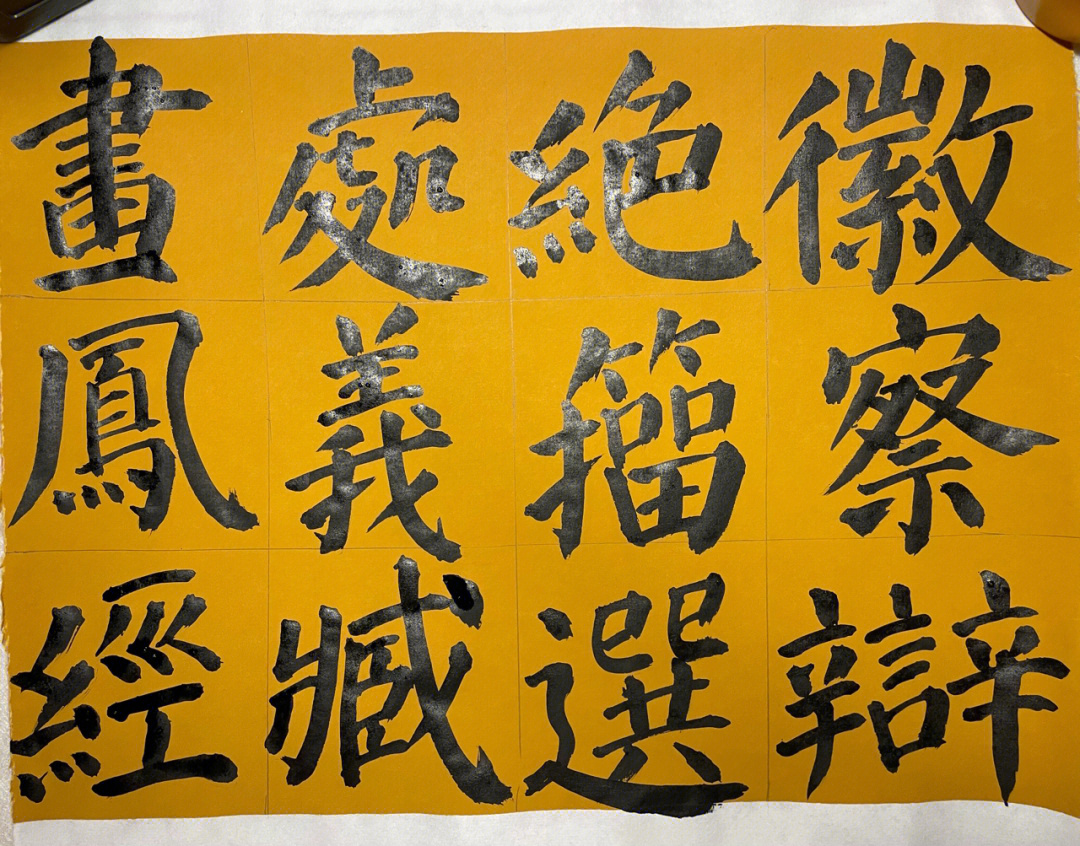 徽察辯
絕籀選
處義臧
畫鳳經